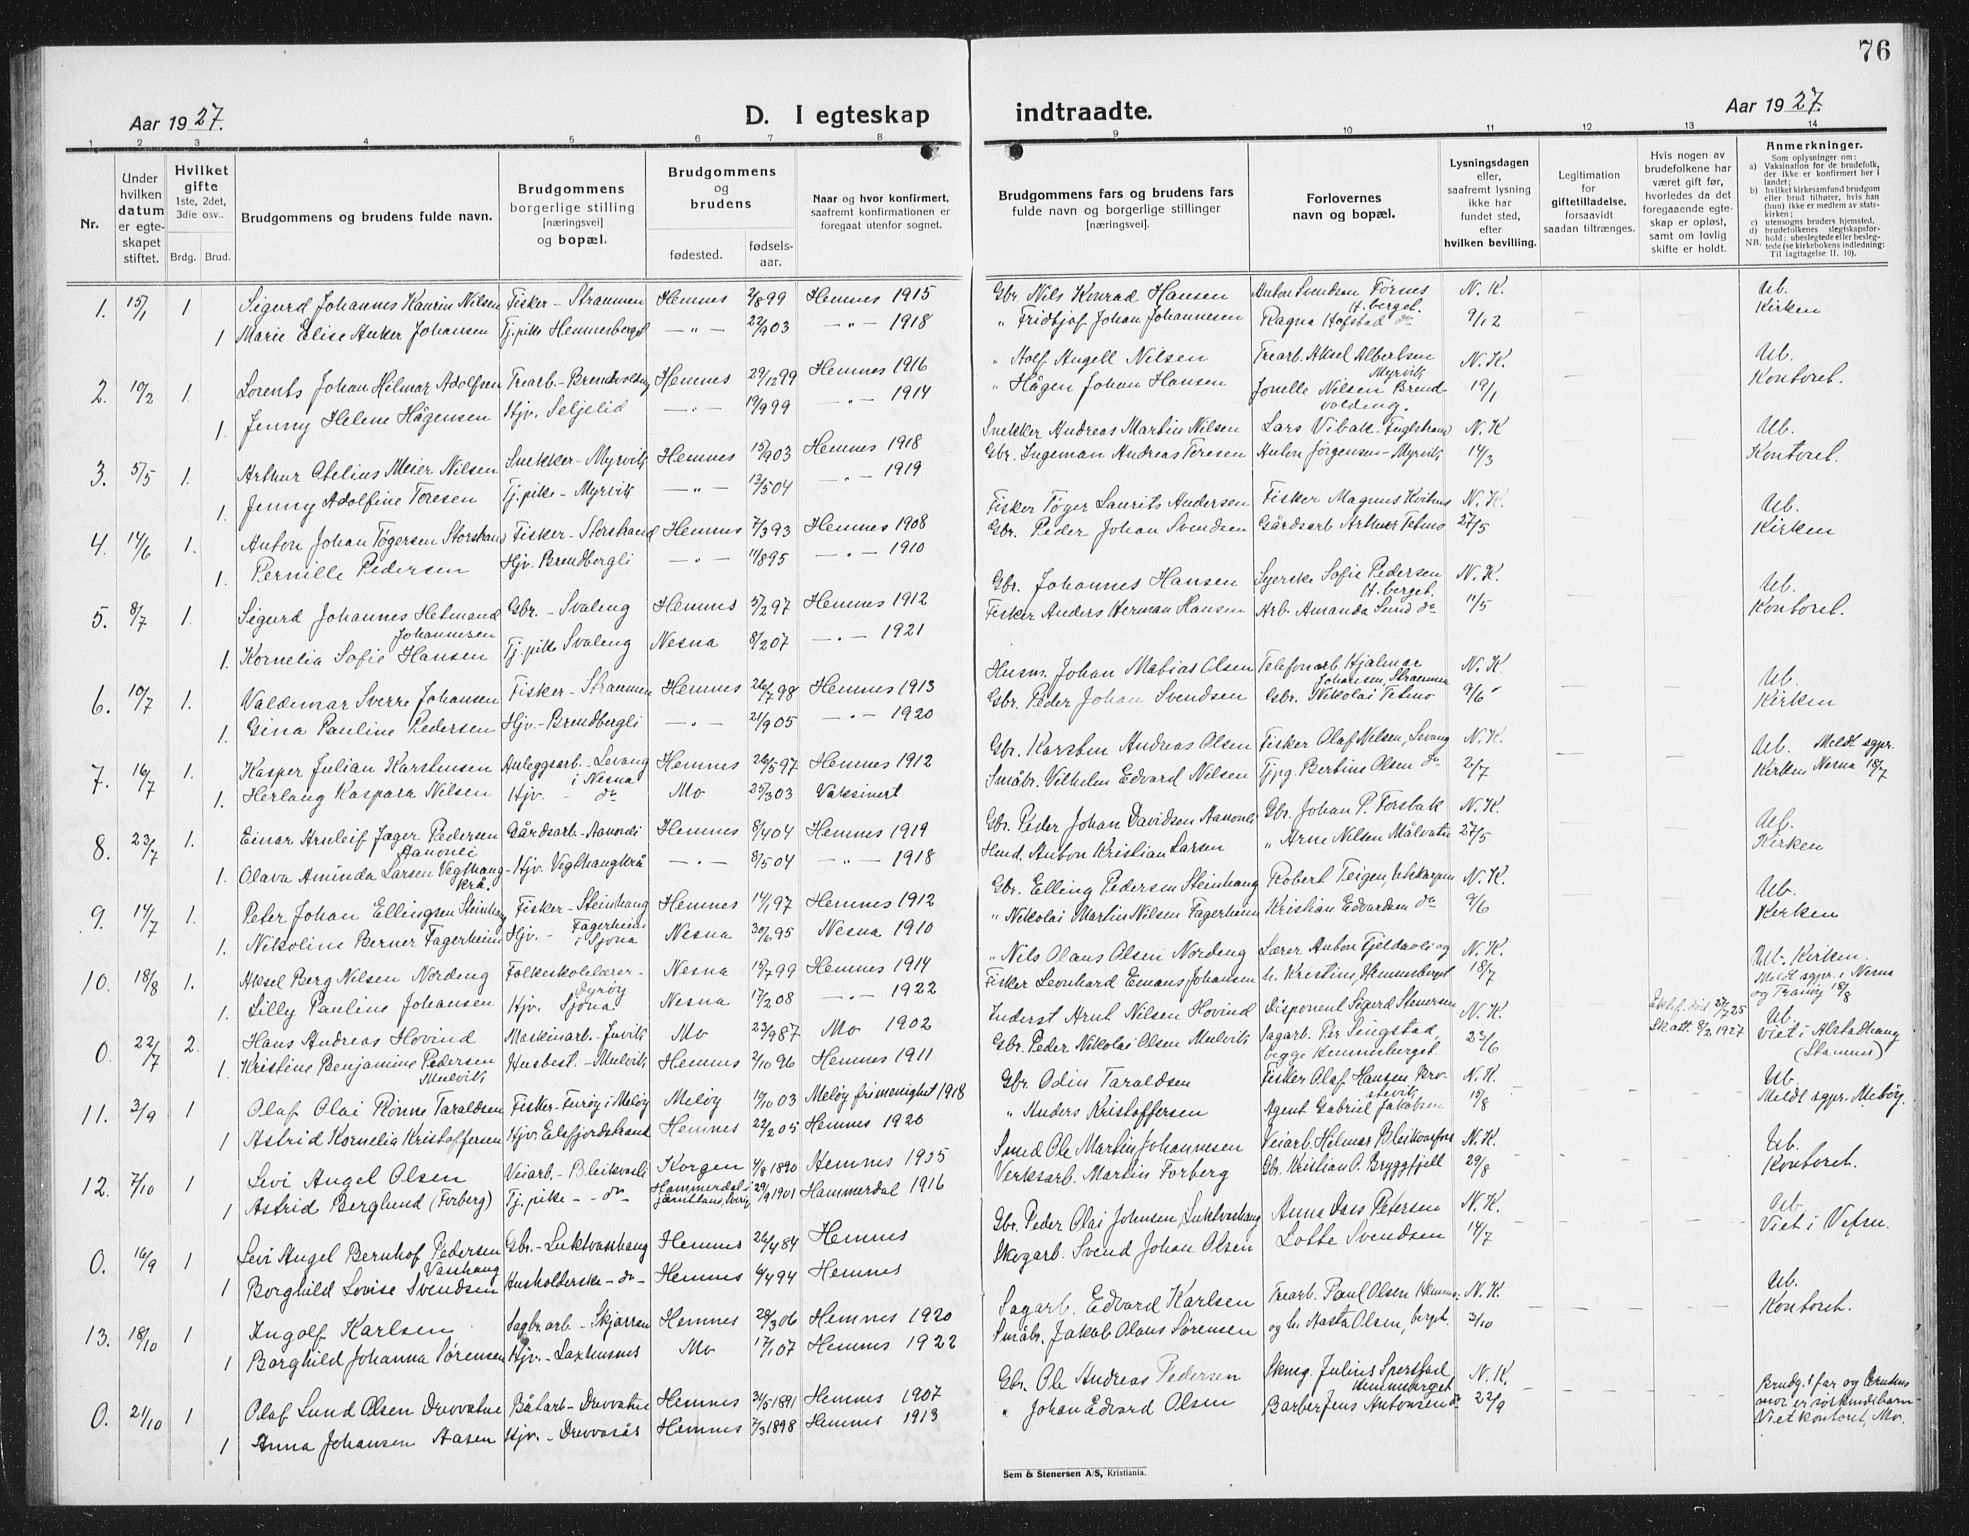 76
Aar 1927.
D. I egteskap
indtraadte.
Aar 1927.
1 2 3 4 5 6 7 8 9 10 11 12 13 14
Nr.
Under hvilken datum er egteskapet stiftet.
Hvilket gifte 1ste, 2det, 3die osv..
Brdg. Brud.
Brudgommens og brudens fulde navn.
Brudgommens borgerlige stilling [næringsvei] og bopæl.
Brudgommens og brudens
fødested.
fødselsaar.
Naar og hvor konfirmert, saafremt konfirmationen er foregaat utenfor sognet.
Brudgommens fars og brudens fars fulde navn og borgerlige stillinger [næringsvei].
Forlovernes navn og bopæl.
Lysningsdagen eller, saafremt lysning ikke har fundet sted, efter hvilken bevilling.
Legitimation for giftetilladelse, forsaavidt saadan tiltrænges.
Hvis nogen av brudefolkene har været gift før, hvorledes da det foregaaende egteskap er opløst, samt om lovlig skifte er holdt.
Anmerkninger.
Som oplysninger om:
a) Vaksination for de brudefolk, der ikke er konfirmert her i landet;
b) hvilket kirkesamfund brudgom eller brud tilhører, hvis han (hun) ikke er medlem av statskirken;
c) utensogns bruders hjemsted,
d) brudefolkenes slegtskapsforhold: ubeslegtede eller beslegtede (se kirkebokens indledning:
NB. Til iagttagelse II. 10).
1. 15/1 1 Sigurd Johannes Kaurin Nilsen Fisker - Straumen Hemnes 2/8 99 Hemnes 1915 Gbr. Nils Konrad Hansen Anton Svendsen Førnes H.berget. N.K. Ub.
1 Marie Elise Anker Johansen Tj.pike Hemnesberget — " — 22/9 03 — " — 1918 " Fridtjof Johan Johannesen Ragna Hofstad do 9/12 Kirken
2. 10/2 1. Lorents Johan Hilmar Adolfsen Trearb. - Brendvolding Hemnes 29/12 99 Hemnes 1916 " Adolf Angell Nilsen Trearb. Aksel Albertsen Myrvik N.K. Ub.
1. Jenny Helene Hågensen Hjv. Seljelid — " — 19/9 99 — " — 1914 " Hågen Johan Hansen Jonelle Nilsen Brendvolding. 19/1 Kontoret.
3. 5/5 1. Arthur Otelius Meier Nilsen Snekker - Myrvik Hemnes 15/9 03 Hemnes 1918 Snekker Andreas Martin Nilsen Lars Vibak - Fuglstrand N.K Ub.
1. Jenny Adolfine Toresen Tj.pike - Myrvik — " — 13/5 04 — " — 1919 Gbr. Ingeman Andreas Toresen Anton Jørgensen - Myrvik 14/3 Kontoret.
4. 14/6 1. Anton Johan Tøgersen Storstrand Fisker - Storstrand Hemnes 7/3 93 Hemnes 1908 Fisker Tøger Laurits Andersen Fisker Magnus Kvitnes N.K. Ub.
1. Pernille Pedersen Hjv. Brendbergli — " — 11/8 95 — " — 1910 Gbr. Peder Johan Svendsen Gårdsarb Arthur Tetmo 27/5 Kirken
5. 8/7 1. Sigurd Johannes Hetmand Johannesen Gbr. - Svaleng Hemnes 5/2 97 Hemnes 1912 Gbr. Johannes Hansen Syerske Sofie Pedersen H.berget. N.K. Ub.
1. Kornelia Sofie Hansen Tj.pike Svaleng Nesna 8/2 07 — " — 1921 Fisker Anders Herman Hansen Arb. Amanda Sund do 11/5 Kontoret.
6. 10/7 1. Valdemar Sverre Johansen Fisker - Straumen Hemnes 26/7 98 Hemnes 1913 Husm. Johan Matias Olsen Telefonarb Hjalmar Johansen, Straumen N.K Ub.
1. Gina Pauline Pedersen Hjv. - Brendbergli — " — 21/9 05 — " — 1920 Gbr. Peder Johan Svendsen Gbr. Nikolai Tetmo 9/6 Kirken
7. 16/7 1. Kasper Julian Karstensen Anleggsarb. - Levang i Nesna Hemnes 26/5 97 Hemnes 1912 Gbr. Karsten Andreas Olsen Fisker Olaf Nilsen, Levang N.K. Ub. Meldt sgpr.
1. Herlaug Kaspara Nilsen Hjv. - do Mo 25/3 03 Vaksinert Småbr. Vilhelm Edvard Nilsen Tjpg. Bertine Olsen do 2/7 Kirken Nesna 18/7
8. 23/7 1. Einar Arnleif Jager Pedersen Aanonli Gårdsarb - Aanonli Hemnes 8/4 04 Hemnes 1919 Gbr. Peder Johan Davidsen Aanonli Gbr. Johan P. Forsbak N.K. Ub.
1. Olava Aminda Larsen Vegthaugkrå. Hjv. Vegthaugkrå — " — 8/5 04 — " — 1918 Hmd. Anton Kristian Larsen " Arne Nilsen Målvatn 27/5 Kirken
9. 14/7 1. Peter Johan Ellingsen Steinhaug Fisker - Steinhaug Hemnes 14/1 97 Hemnes 1912 Gbr. Elling Pedersen Steinhaug Robert Teigen, Utskarpen N.K. Ub.
1. Nikoline Berner Fagerheim Hjv. - Fagerheim i Sjona Nesna 30/6 95 Nesna 1910 " Nikolai Martin Nilsen Fagerheim Kristian Edvardsen do 9/6 Kirken
10. 18/8 1. Aksel Berg Nilsen Nordeng Folkeskolelærer - Dyrøy Nesna 15/7 99 Hemnes 1914 " Nils Olaus Olsen Nordeng Lærer Anton Fjeldavli og N.K. Ub - Kirken.
1. Lilly Pauline Johansen Hjv. Sjona Nesna 17/2 08 — " — 1922 Fisker Leonhard Emans Johansen h. Kristine, Hemnesberget 18/7 Meldt sgpr. i Nesna og Tranøy 18/8
0. 22/7 2. Hans Andreas Hovind Maskinarb. - Juvik Mo 23/9 87 Mo 1902 Inderst Arnt Nilsen Hovind Disponent Sigurd Stenersen N.K. Ektef. død 27/7 25 Skatt. 8/2 1927 Ub.
1. Kristine Benjamine Pedersen Mulvik Husbest. - Mulvik Hemnes 2/10 96 Hemnes 1911 Gbr. Peder Nikolai Olsen Mulvik Sagarb. Per Sengstad, begge Hemnesberget. 23/6 Viet i Alstadhaug (Stamnes)
11. 3/9 1 Olaf Olai Rønne Taraldsen Fisker - Furøy i Meløy Meløy 19/10 03 Meløy frimenighet 1918 Gbr. Odin Taraldsen Fisker Olaf Hansen N.K. Ub.
1 Astrid Kornelia Kristoffersen Hjv. Elsfjordstrand Hemnes 22/2 05 Hemnes 1920 " Anders Kristoffersen Agent Gabriel Jakobsen 15/8 Meldt sgpr. Meløy.
12. 7/10 1 Levi Angel Olsen Veiarb - Bleikvasli Korgen 4/8 1890 Hemnes 1905 Smed Ole Martin Johannesen Veiarb. Helmar Bleikvasfors N.K. Ub.
1 Astrid Berglund (Forberg) Tj.pike - - do - Hammerdal - Jämtland, Sverig 29/9 1901 Hammerdal 1916 Verksarb. Martin Forberg Gbr. Kristian A. Bryggfjell 29/8 Kontoret.
0. 16/9 1 Levi Angel Bernhof Pedersen Vasshaug Gbr. - Luktvasshaug Hemnes 26/4 84 Hemnes Gbr. Peder Olai Johnsen, Luktvasshaug Anna Dass Petersen N.K. Ub.
1 Borghild Lovise Svendsen Husholderske - do - Hemnes 6/4 94 Hemnes Skogarb. Svend Johan Olsen Lotte Svendsen 14/7 Viet i Vefsn.
13. 18/10 1 Ingolf Karlsen Sagbr.arb - Skjærran Hemnes 28/3 06 Hemnes 1920 Sagarb. Edvard Karlsen Trearb. Paul Olsen Hemnes- N.K. Ub.
1 Borghild Johanna Sørensen Hjv. - Laxhusnes Mo 17/1 07 Hemnes 1922 Småbr. Jakob Olaus Sørensen og h. Aasta Olsen, berget. 3/10 Kontoret.
0. 21/10 1 Olaf Lund Olsen Drevvatne Båtarb - Drevvatne Hemnes 31/5 1891 Hemnes 1907 Gbr. Ole Andreas Pedersen Skmg. Julius Spersfad Hemnesberget N.K. Brudg.s far og Brudens mor er søskendebarn -
1 Anna Johansen Aasen Hjv. - Drevvasås Hemnes 7/3 1898 Hemnes 1913 " Johan Edvard Olsen Barber Jens Antonsen do 22/9 Viet kontoret, Mo.
Sem & Stenersen A/S, Kristiania.